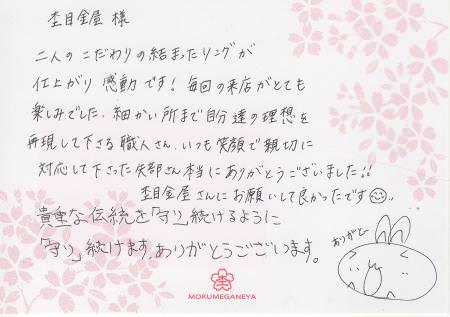 杢目金屋 様
二人のこだわりの結まったリングが
仕上がり感動です！毎回の来店がとても
楽しみでした。細かい所まで自分達の理想を
再現して下さる職人さん、いつも笑顔で親切に
対応して下さった矢部さん本当にありがとうございました!!
杢目金屋さんにお願いして良かったです
貴重な伝統を「守り」続けるように
「守り」続けます。ありがとうございます。
ありがと
MOKUMEGANEYA